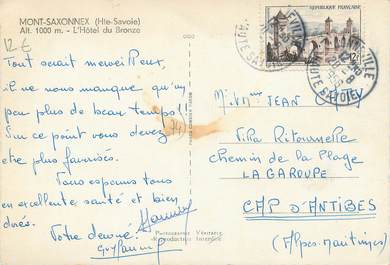 MONT-SAXONNEX (Hte-Savoie)
Alt. 1000 m. - L'Hôtel du Bronze
12€
Tout serait merveilleux,
il ne nous manque qu'un
peu plus de beau temps !!
Sur ce point vous devez
être plus favorisés.
Nous espérons tous
en excellente santé et bien
dorés.
Votre dévoué
(74)
Photographie Véritable
Reproduction Interdite
RÉPUBLIQUE FRANÇAISE
12F
HAUTE SAVOIE
M. et Mme JEAN
Villa Ritournelle
Chemin de la Plage
LA GAROUPE
CAP D'ANTIBES
(Alpes-Maritimes)